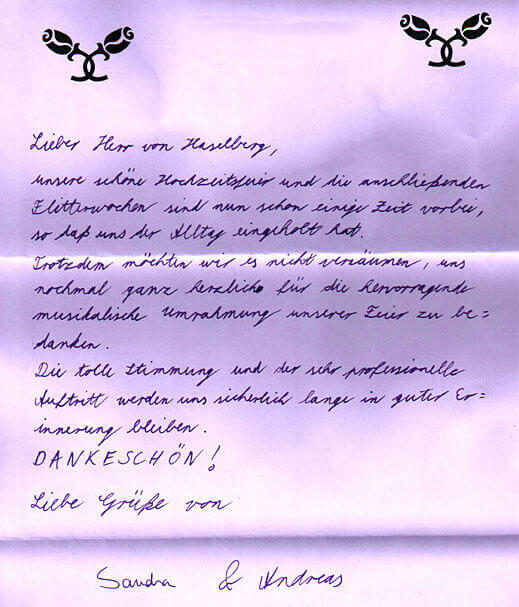 Lieber Herr von Haselberg,
unsere schöne Hochzeitsfeier und die anschließenden
Flitterwochen sind nun schon einige Zeit vorbei,
so daß uns der Alltag eingeholt hat.
Trotzdem möchten wir es nicht versäumen, uns
nochmal ganz herzlich für die hervorragende
musikalische Umrahmung unserer Feier zu be=
danken.
Die tolle Stimmung und der sehr professionelle
Auftritt werden uns sicherlich lange in guter Er=
innerung bleiben.
DANKESCHÖN!
Liebe Grüße von
Sandra & Andreas